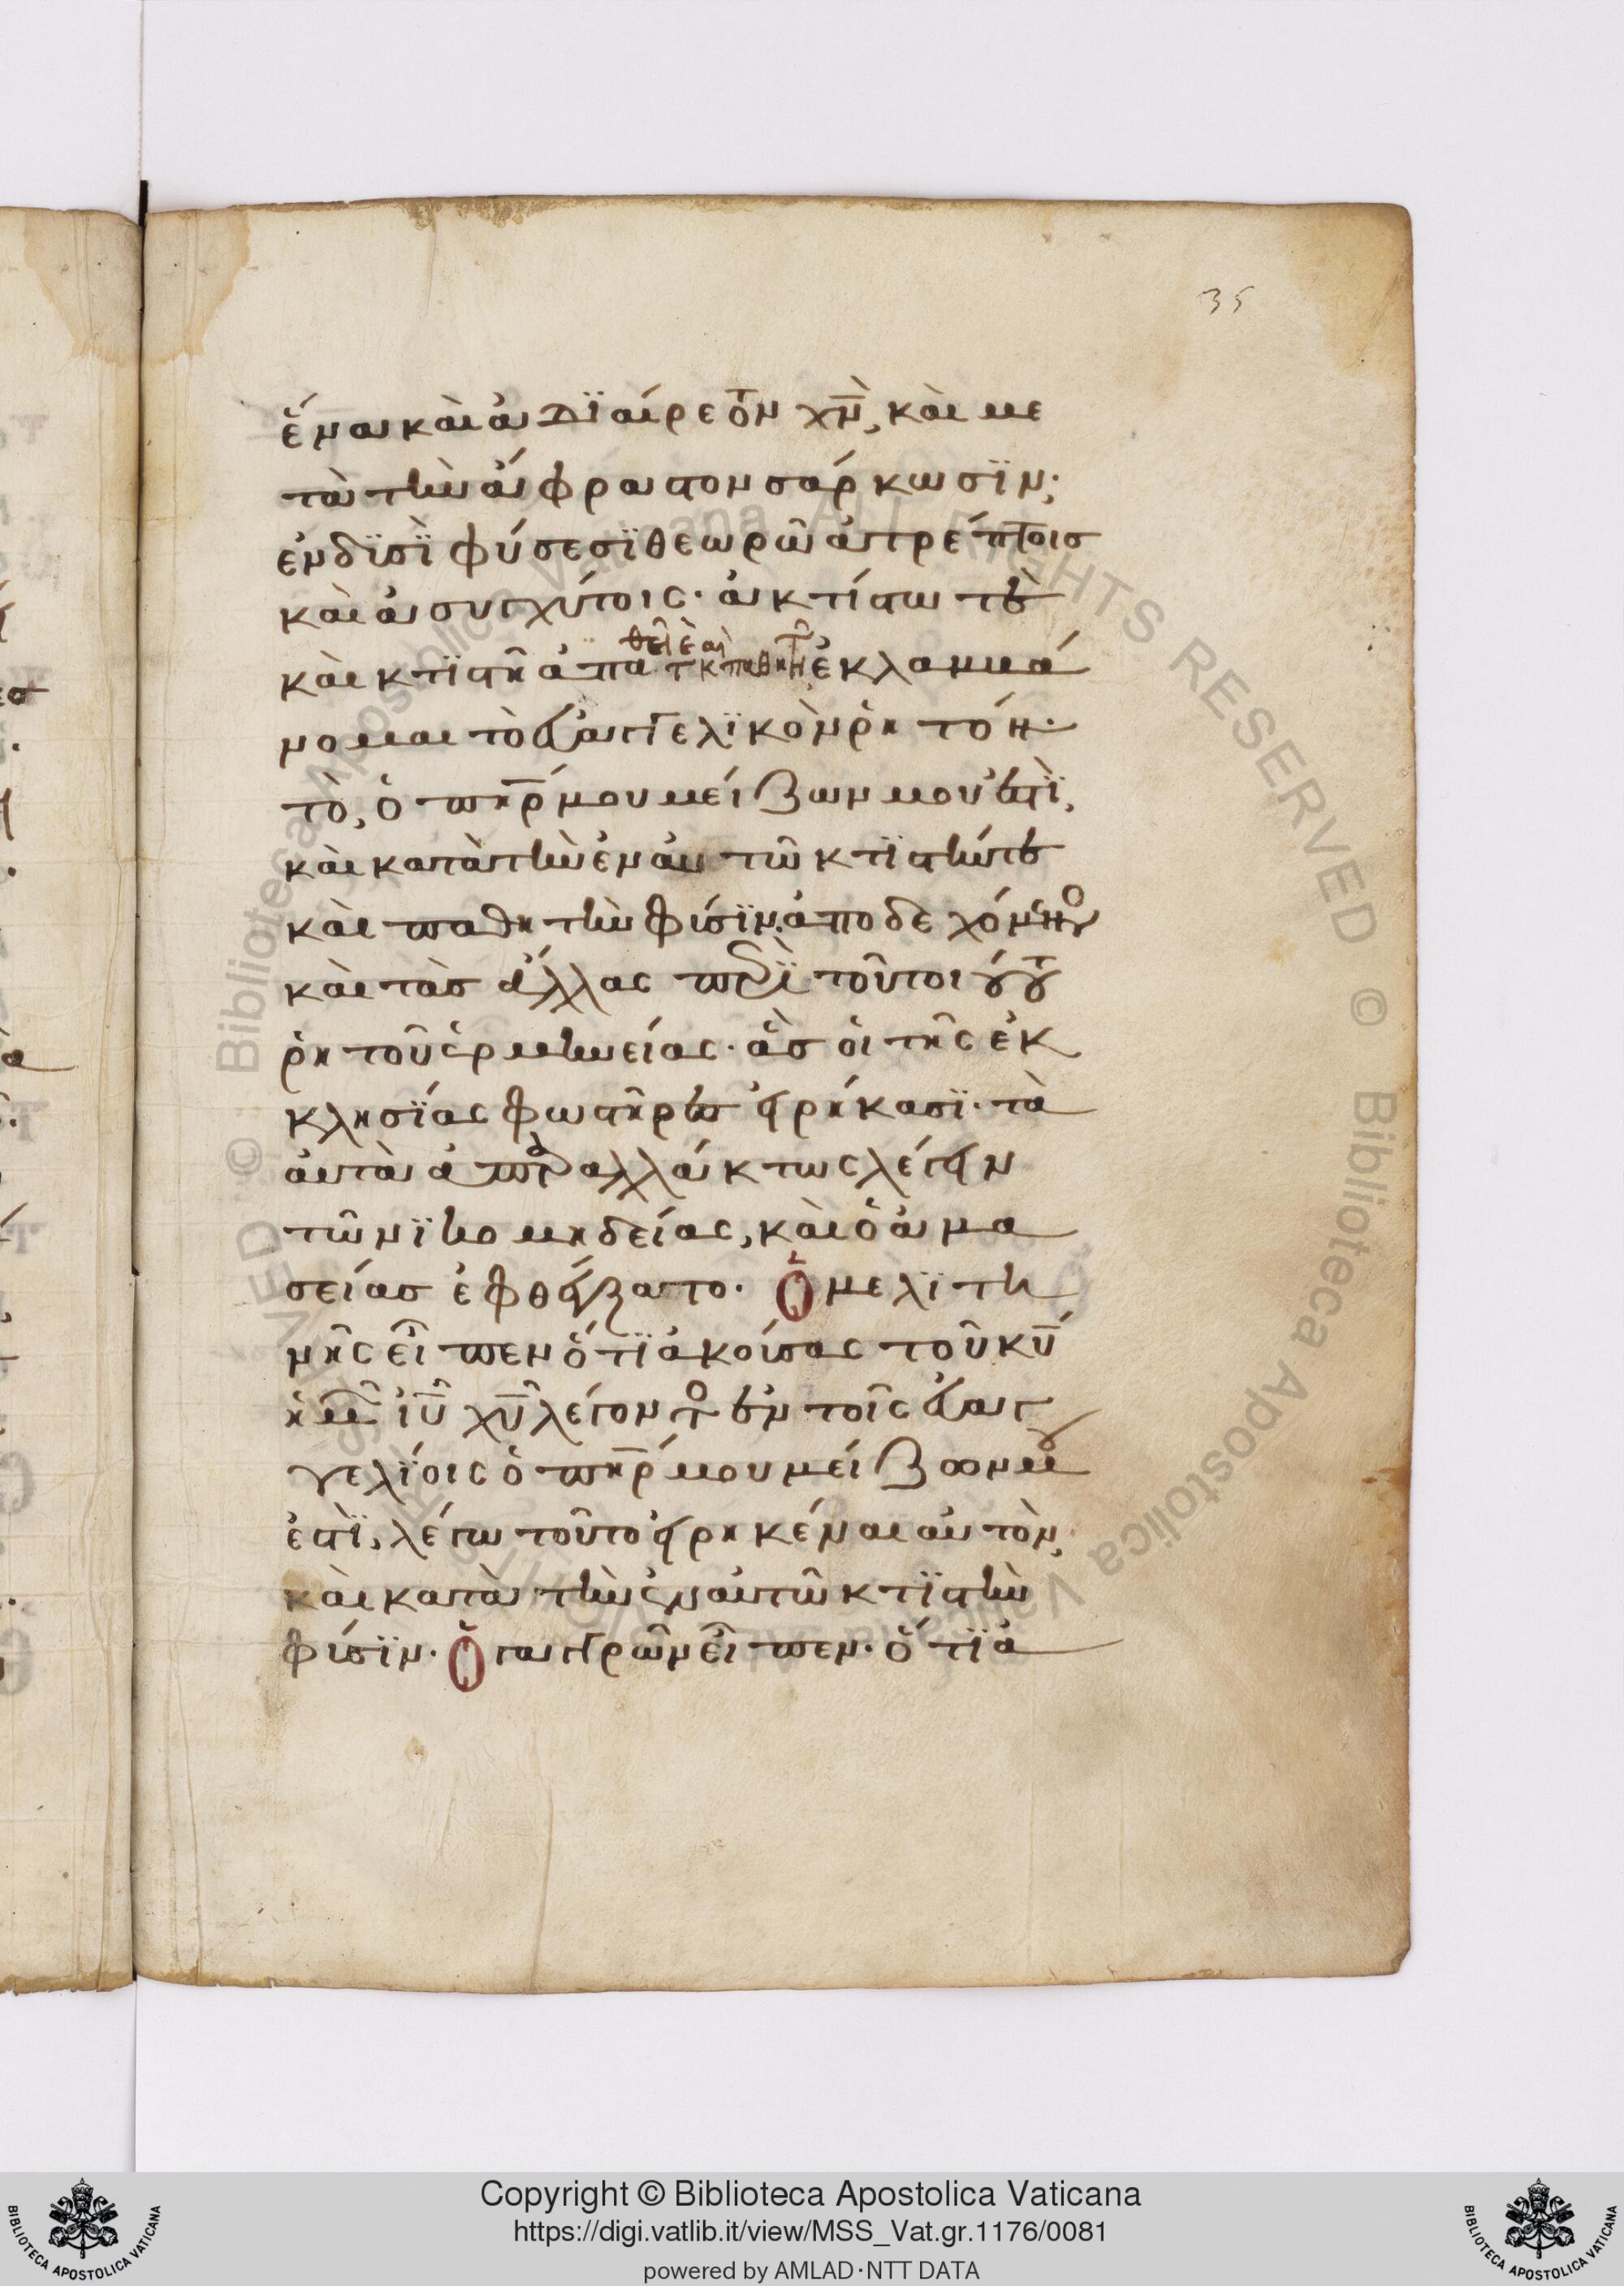 35
ἕνα καὶ ἀδιαίρετον χν̅, καὶ με
τὰ τὴν ἄφραστον σάρκωσϊν·
ἐν δϊσὶ φύσεσϊ θεωρῶ ἀτρέπτοις
καὶ ἀσυγχύτοις· ἀκτίστω τὲ
καὶ κτϊστῆ ἀπα
θεῖ ἐκλαμβά
νομαι τὸ εὐαγγελϊκὸν ῥητόν·
τὸ, ὁ πηρ̅ μου μείζων μου ἐστὶ,
καὶ κατὰ τὴν ἐν αὐτῶ κτϊστήν τε
καὶ παθητὴν φύσϊν. ἀποδεχόμενος
καὶ τὰς ἄλλας περὶ τοῦ τοιούτου
ῥητοῦ ἑρμηνείας· ἃς οἱ τῆς ἐκ
κλησίας φωστῆρες εἰρήκασϊ· τὰ
αὐτὰ ἀπαραλλάκτως λέγειν
τῶ νϊκομηδείας, καὶ ὁ ἀμα
σείας ἐφθέγξατο. Ὁ μελϊτη
νῆς εἶπεν ὅτϊ ἀκούσας τοῦ κυ̅
ἡμῶν ιυ̅ χυ̅ λέγοντος ἐν τοῖς εὐαγ
γελίοις ὁ πηρ̅ μου μείζων μου
ἐστϊ, λέγω τοῦτο εἰρηκέναι αὐτὸν,
καὶ κατὰ τὴν ἐν αὐτῶ κτϊστὴν
φύσϊν. Ὁ γαγγρῶν εἶπεν· ὅτϊ ἀ
Copyright © Biblioteca Apostolica Vaticana
https://digi.vatlib.it/view/MSS_Vat.gr.1176/0081
powered by AMLAD·NTT DATA
BIBLIOTECA APOSTOLICA VATICANA
BIBLIOTECA APOSTOLICA VATICANA